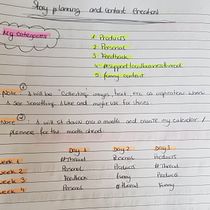 Story planning and content Creation!
My Categories
1. Products
2. Personal
3. Feedback
4. #support
5. funny content
Note: I will be "Collecting images, text, etc as inspiration when
I see something I like and might use for stories
Note: I will sit down once a month and create my calendar /
planner for the month ahead
Day 1 Day 2 Day 3
week 1 Personal Products
week 2 Products Personal
week 3 Feedback funny Products
week 4 Personal Funny